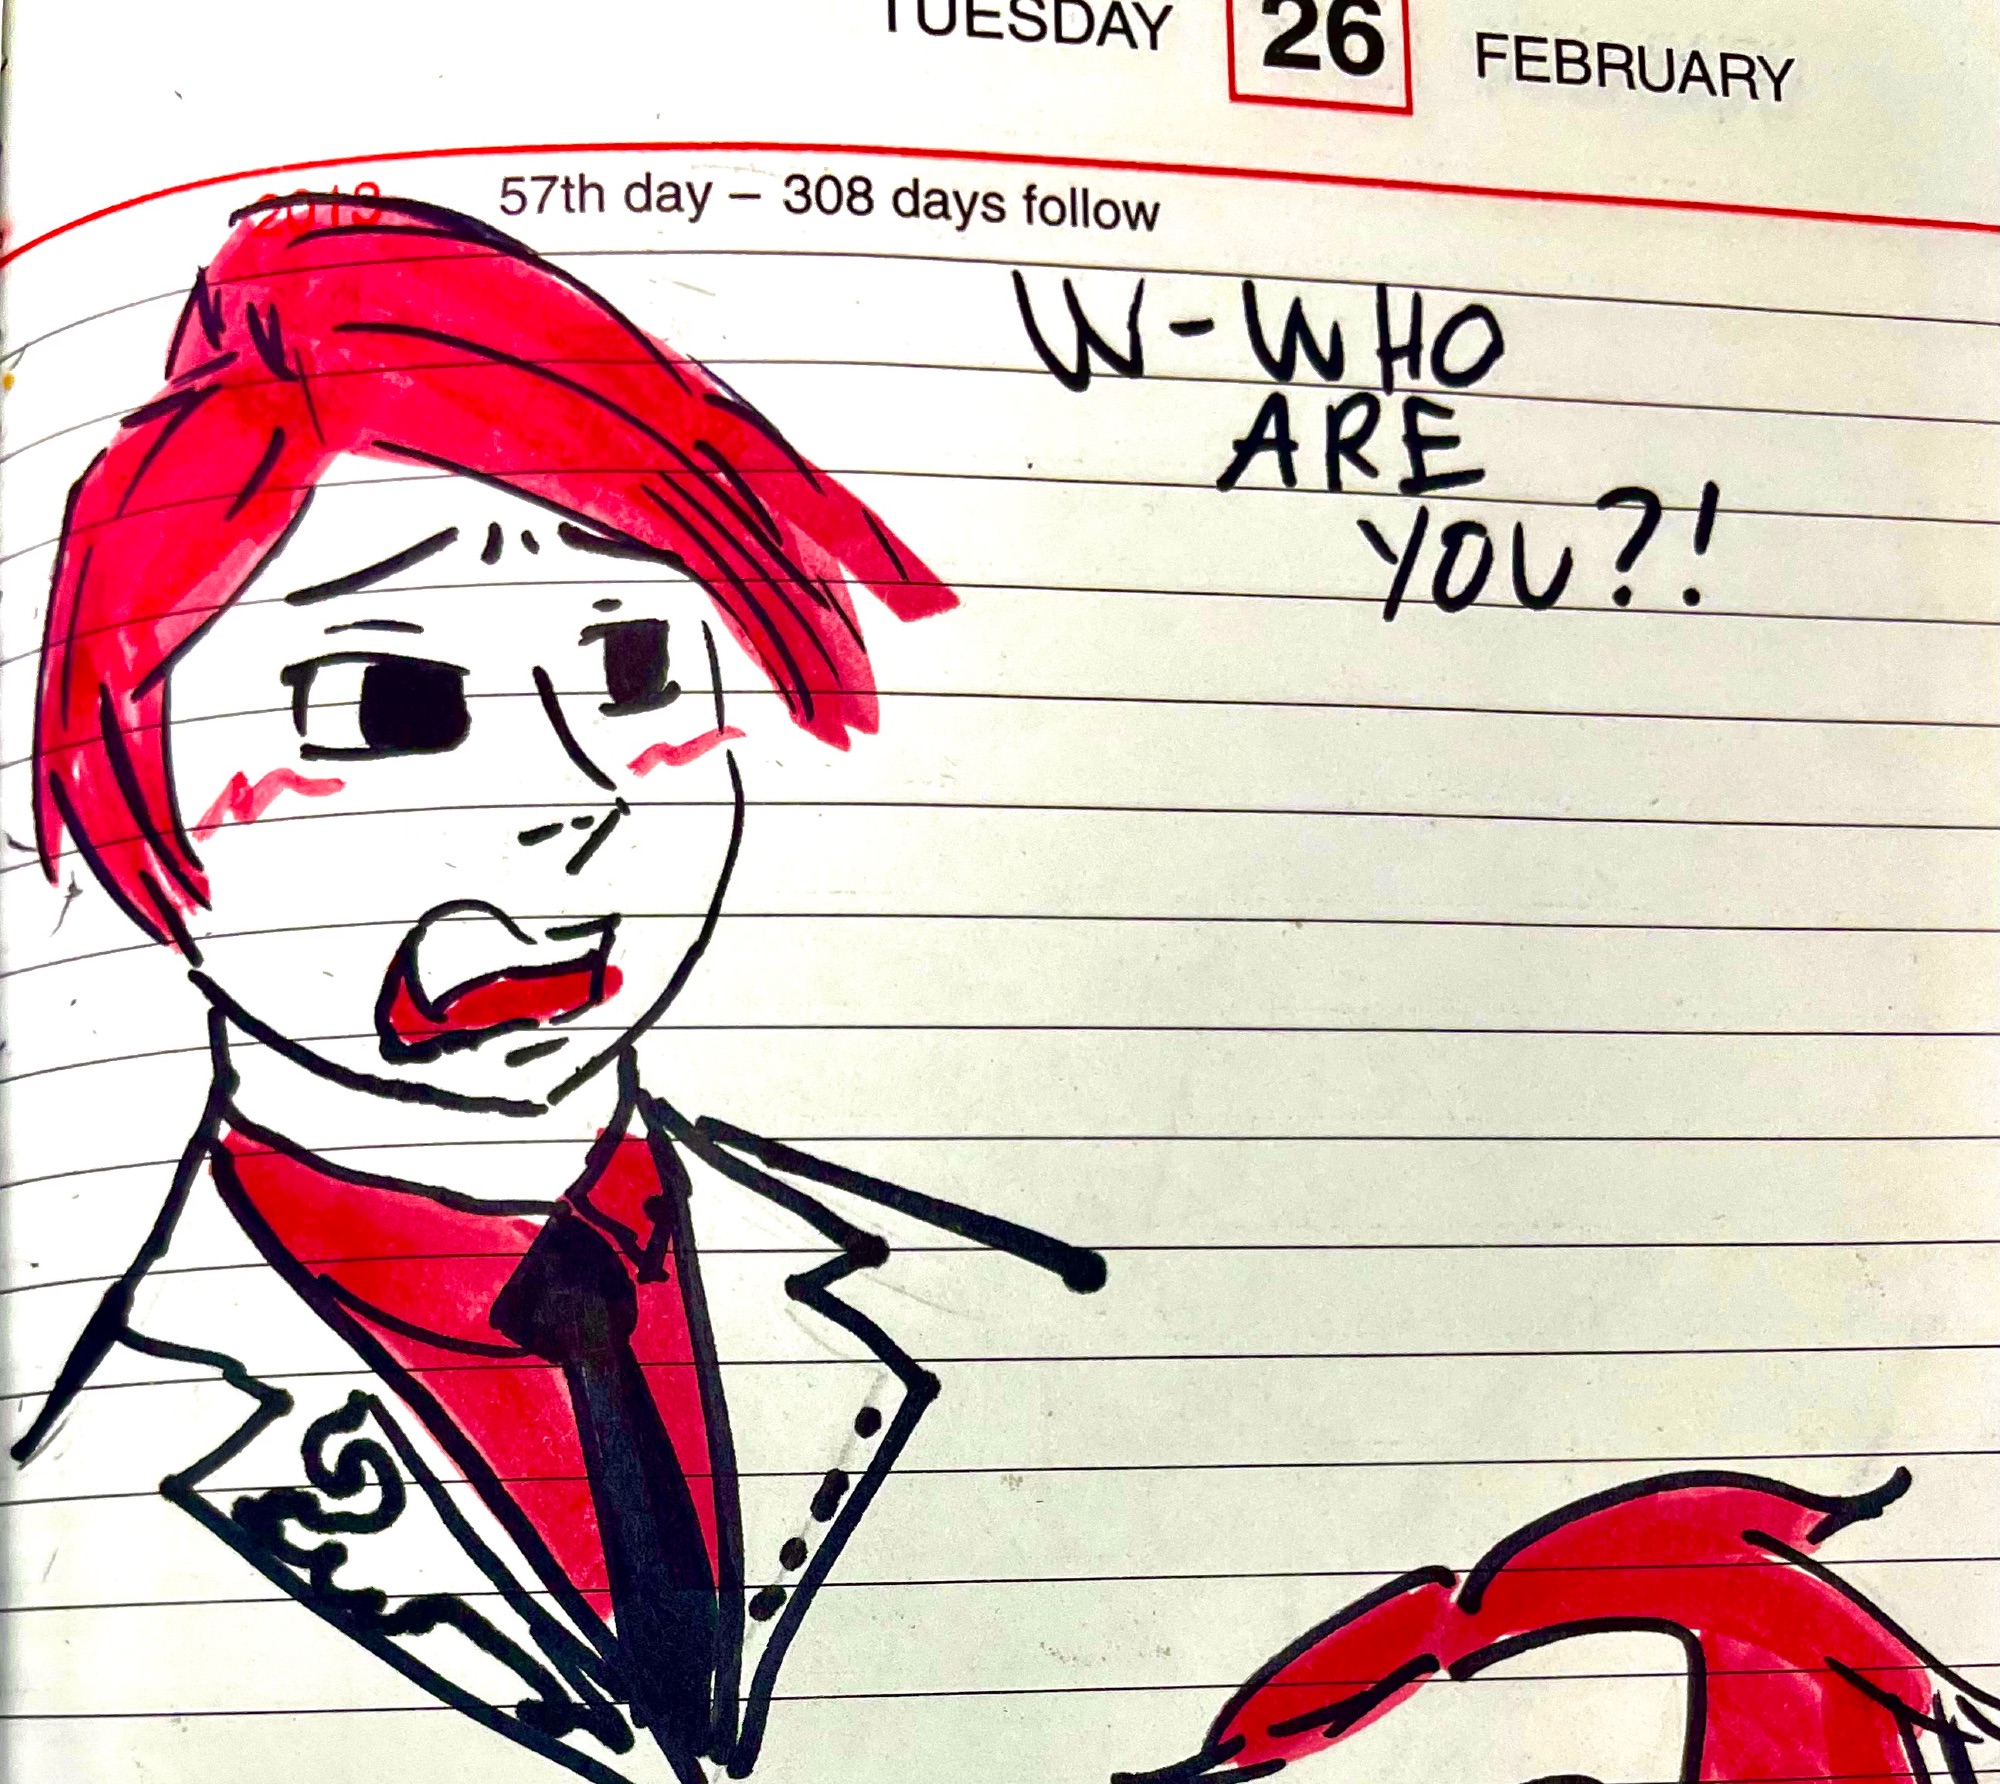 TUESDAY 26 FEBRUARY
2013 57th day – 308 days follow
W-WHO
ARE
YOU?!